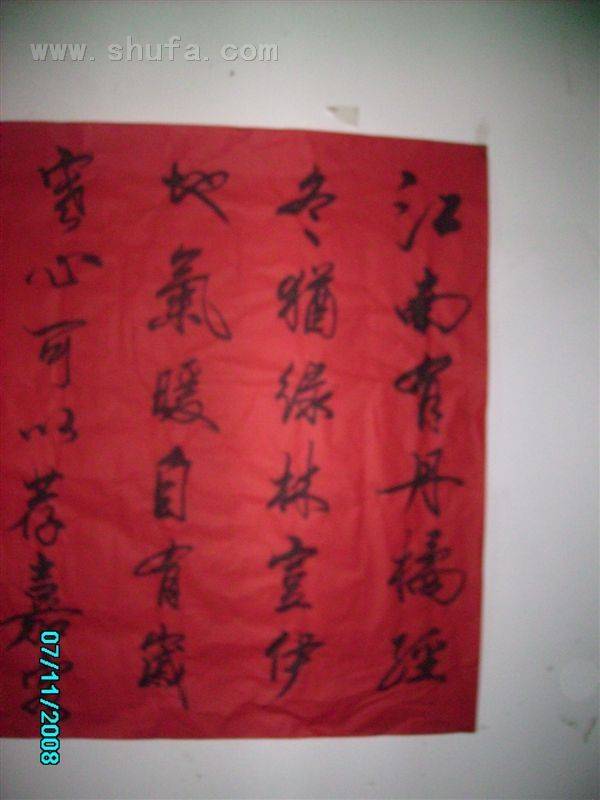 www.shufa.com
江南有丹橘經
冬猶綠林豈伊
地氣暖自有歲
寒心可以荐嘉客
07/11/2008